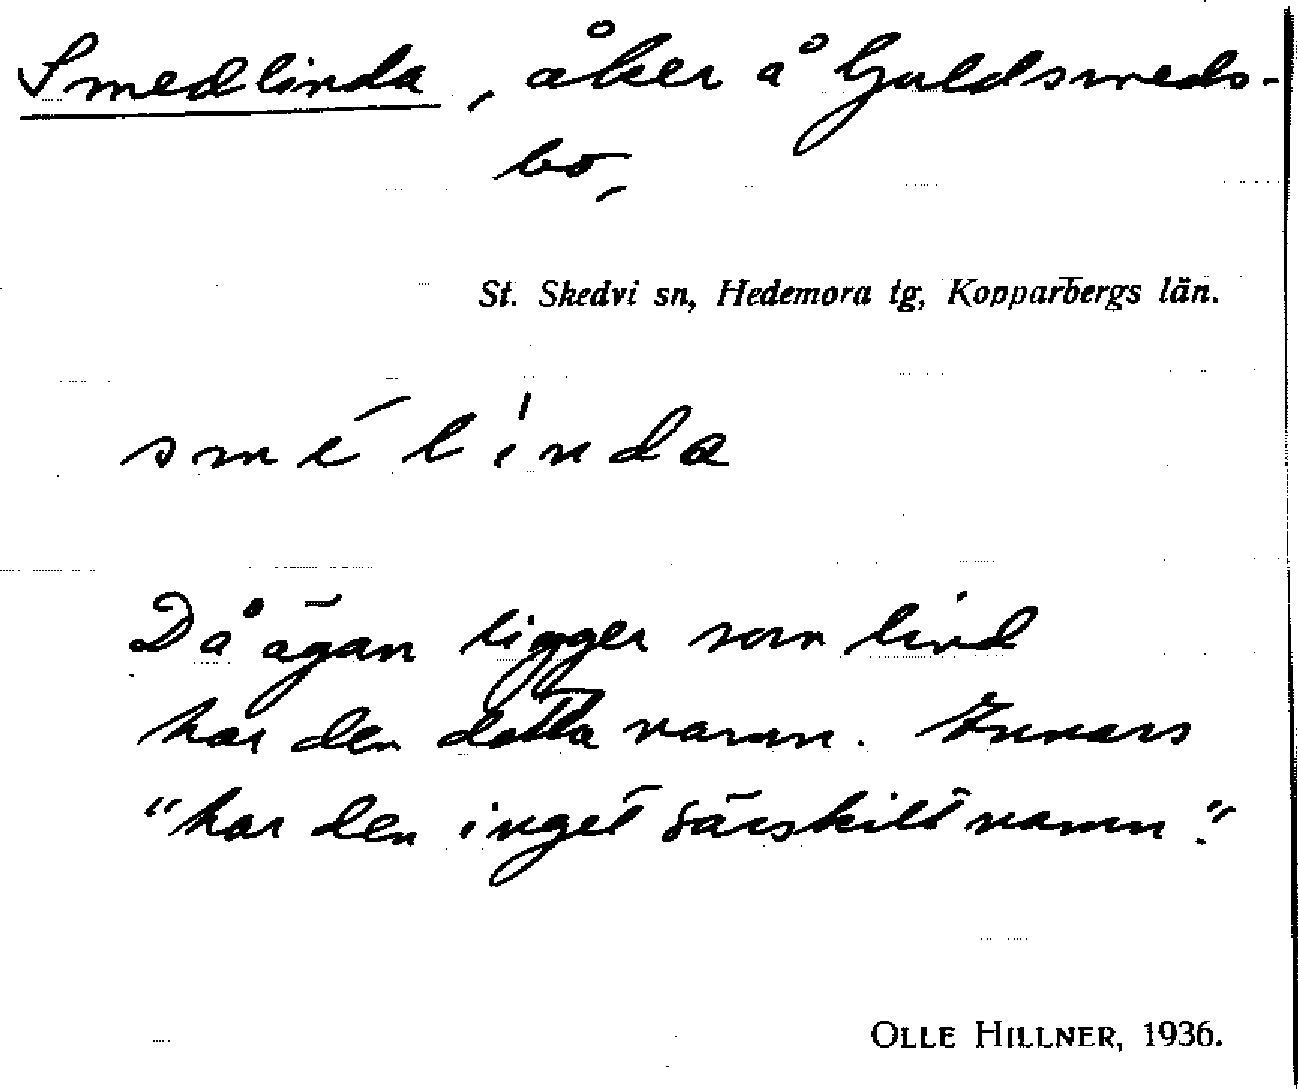 Smedlinda, åker å Guldsmeds-
bo,
St. Skedvi sn, Hedemora tg, Kopparbergs län.
smélinda
Då ägan ligger som lind
har den detta namn. Annars
"har den inget särskilt namn."
OLLE HILLNER, 1936.